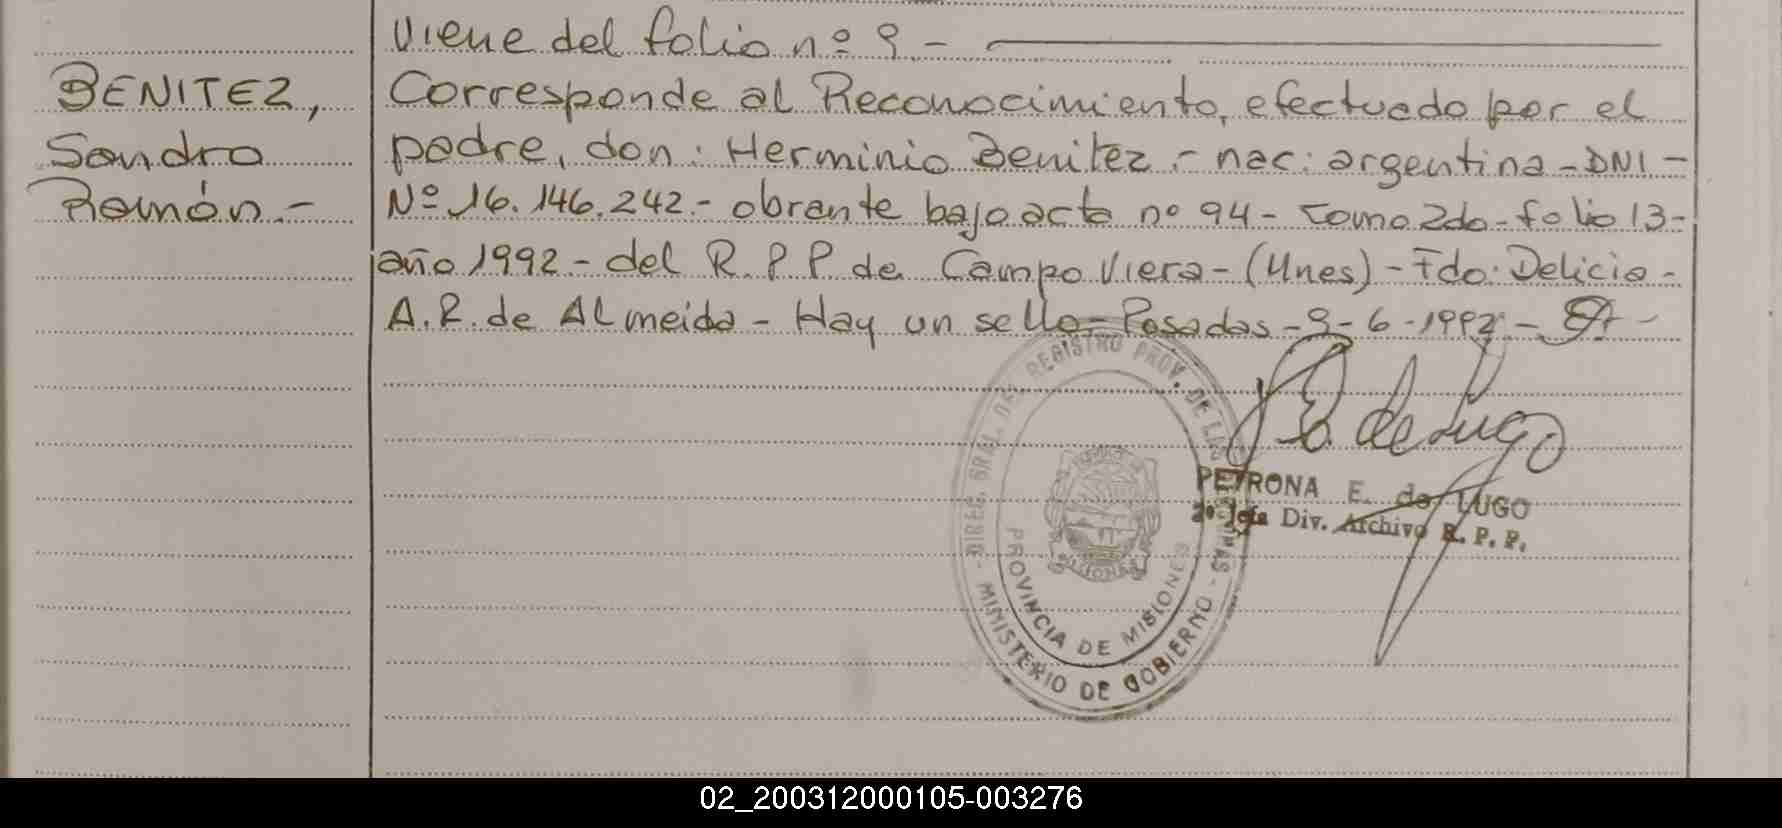 Viene del folio nº 9.-
BENITEZ,
Sandro
Ramón.-
Corresponde al Reconocimiento, efectuado por el
padre, don: Herminio Benitez.- nac: argentina - DNI -
Nº 16.146.242.- obrante bajo acta nº 94 - Tomo 2do - folio 13 -
año 1992 - del R.P.P de Campo Viera - (Mnes) - Fdo: Delicia -
A.R. de Almeida - Hay un sello - Posadas - 9-6-1992 -
DIREC. GRAL. DEL REGISTRO PROV. DE LAS PERSONAS -
MINISTERIO DE GOBIERNO -
PROVINCIA DE MISIONES
de Lugo
PETRONA E. de LUGO
2º Jefe Div. Archivo R. P. P.
02_200312000105-003276